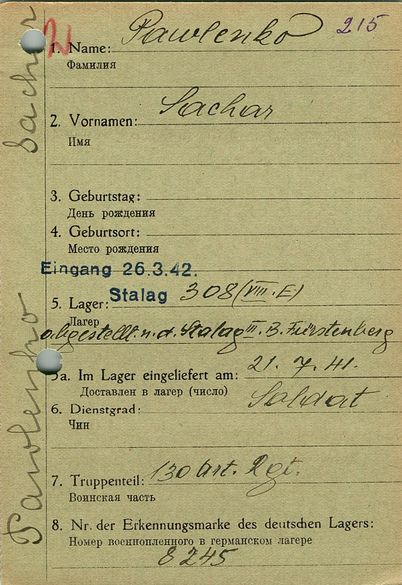 Pawlenko 215
1. Name:
Фамилия
Sachar
2. Vornamen:
Имя
3. Geburtstag:
День рождения
4. Geburtsort:
Место рождения
Eingang 26.3.42.
Stalag 308 (VIII. E)
5. Lager:
Лагер
abgestellt. n. d. Stalag III. B. Fürstenberg
5a. Im Lager eingeliefert am: 21. 7. 41.
Доставлен в лагер (число)
6. Dienstgrad: Soldat
Чин
7. Truppenteil: 130 Art. Rgt.
Воинская часть
8. Nr. der Erkennungsmarke des deutschen Lagers:
Номер военнопленного в германском лагере
8245
Pawlenko Sachar